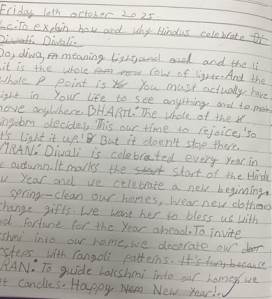 Friday 10th October 2025
L.C: To explain how and why Hindus celebrate
Diwali.
So, diva, meaning light, and and the li
it is the whole row of lights. And the
whole point is You must actually have
light in Your life to see anything and to
move anywhere. BHARTI: The whole of the
kingdom decided, This our time to rejoice, 'So
it's light it up!' But it doesn't stop there.
SIMRAN: Diwali is celebrated every year in
autumn. It marks the start start of the Hindu
New Year and we celebrate a new beginning.
spring-clean our homes, wear new clothes
change gifts. We want her to bless us with
good fortune for the Year ahead. To invite
Lakshmi into our home, we decorate our
steps with rangoli patterns.
SIMRAN: To guide Lakshmi into our homes, we
candles. Happy New New Year!